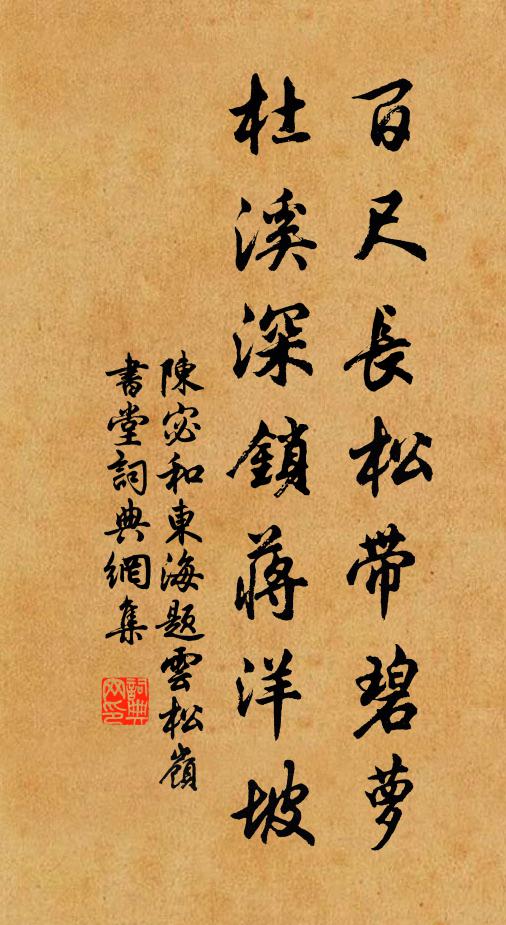 百尺長松帶碧萝
杜溪深鎖蔣洋坡
陳宓和東海題雲松嶺
書堂詞典網集
詞典網印